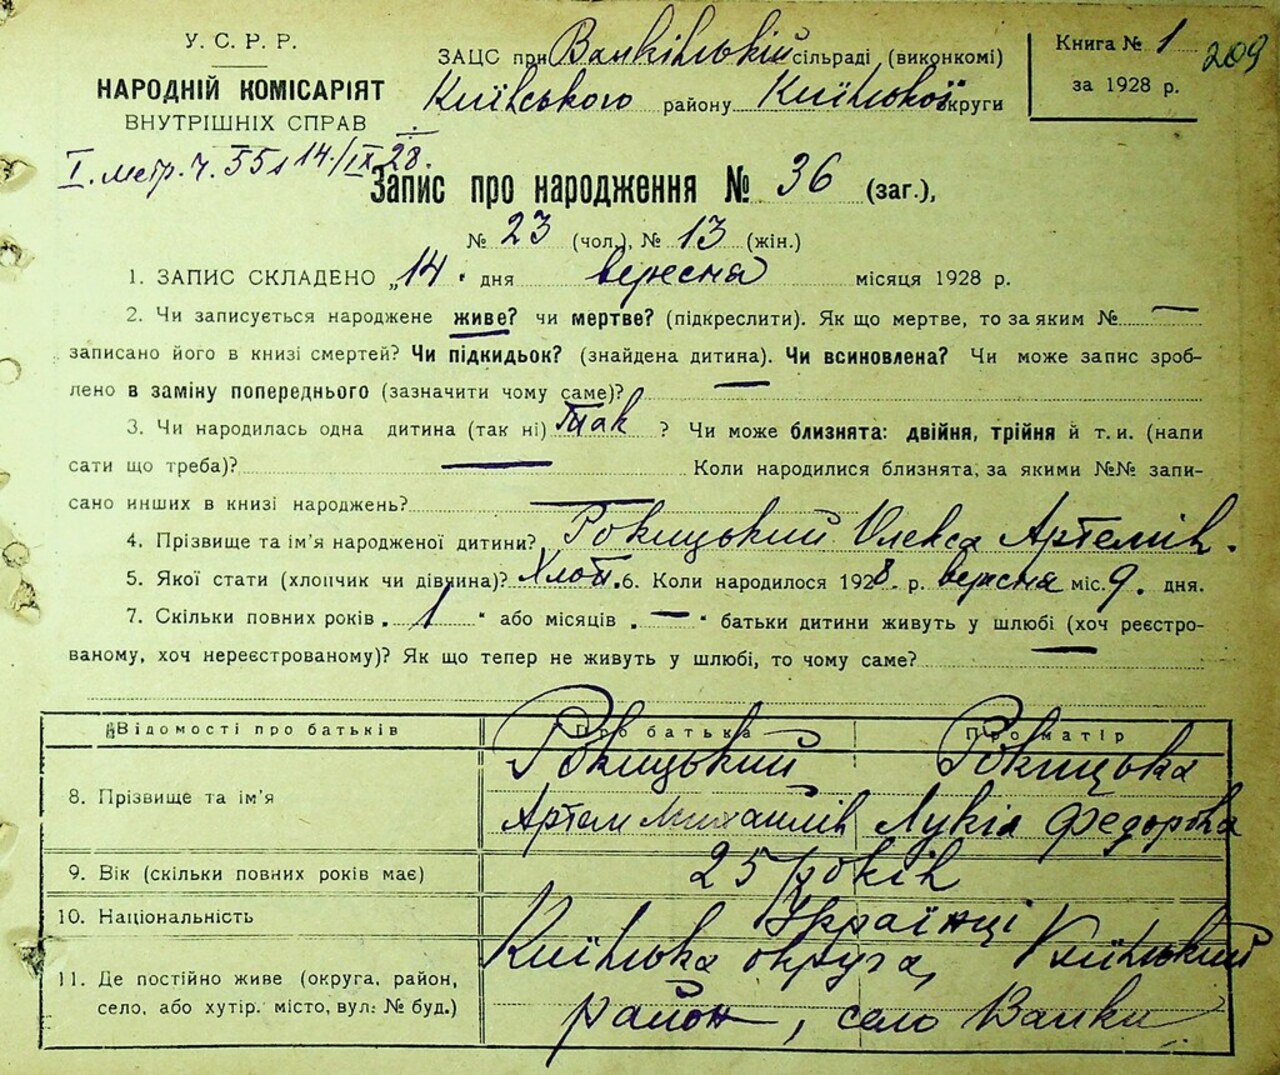 У. С. Р. Р.
НАРОДНІЙ КОМІСАРІЯТ
ВНУТРІШНІХ СПРАВ
I. метр. ч. 55 14/IX 28.
ЗАЦС при сільраді (виконкомі)
Київського району Київської округи
Книга № 1
за 1928 р.
209
Запис про народження № 36 (заг.),
№ 23 (чол.), № 13 (жін.)
1. ЗАПИС СКЛАДЕНО „14" дня вересня місяця 1928 р.
2. Чи записується народжене живе? чи мертве? (підкреслити). Як що мертве, то за яким № —
записано його в книзі смертей? Чи підкидьок? (знайдена дитина). Чи всиновлена? Чи може запис зроб-
лено в заміну попереднього (зазначити чому саме)? —
3. Чи народилась одна дитина (так ні) Так ? Чи може близнята: двійня, трійня й т. и. (напи
сати що треба)? — Коли народилися близнята, за якими №№ запи-
сано инших в книзі народжень? —
4. Прізвище та ім'я народженої дитини? Рокицький Олекса Артемів.
5. Якої стати (хлопчик чи дівчина)? Хлоп. 6. Коли народилося 1928. р. вересня міс. 9. дня.
7. Скільки повних років „ 1 " або місяців „ — " батьки дитини живуть у шлюбі (хоч реєстро-
ваному, хоч нереєстрованому)? Як що тепер не живуть у шлюбі, то чому саме? —
Відомості про батьків Про батька Про матір
8. Прізвище та ім'я
Рокицький Рокицька
Артем Михайлів Лукія Федорова
9. Вік (скільки повних років має) 25 років
10. Національність Українці
11. Де постійно живе (округа, район,
село, або хутір. місто, вул: № буд.)
Київська округа, Київський
район, село